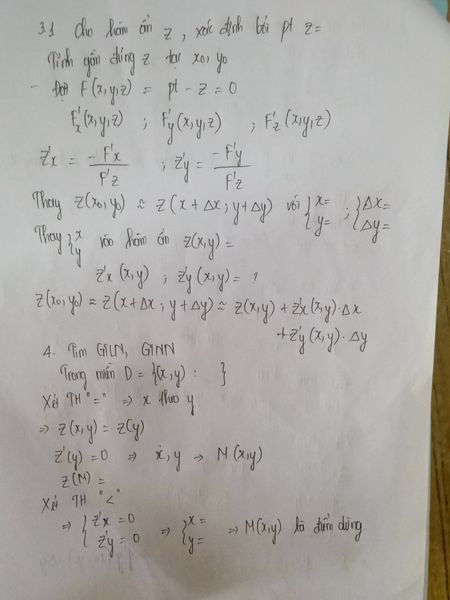 3.1 Cho hàm ẩn z, xác định bởi pt z=
Tính gần đúng z tại x₀, y₀
- Đặt F(x,y,z) = pt - z = 0
F'x(x,y,z) ; F'y(x,y,z) ; F'z(x,y,z)
z'x = -F'x / F'z ; z'y = -F'y / F'z
Thay z(x₀,y₀) ≈ z(x+Δx; y+Δy) với { x= y= ; { Δx= Δy=
Thay { x y vào hàm ẩn z(x,y) =
z'x(x,y) ; z'y(x,y) = ?
z(x₀,y₀) ≈ z(x+Δx; y+Δy) ≈ z(x,y) + z'x(x,y).Δx
+ z'y(x,y).Δy
4. Tìm GTLN, GTNN
Trong miền D = {(x,y) : }
Xét TH "=" ⇒ x theo y
⇒ z(x,y) = z(y)
z'(y) = 0 ⇒ x, y → N(x,y)
z(N) =
Xét TH "<"
⇒ { z'x = 0 z'y = 0 ⇒ { x= y= ⇒ M(x,y) là điểm dừng.